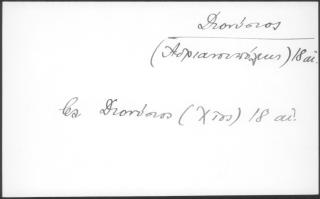 Διονύσιος
(Αδριανουπόλεως) 18 αι.
Βλ. Διονύσιος (Χίος) 18 αι.